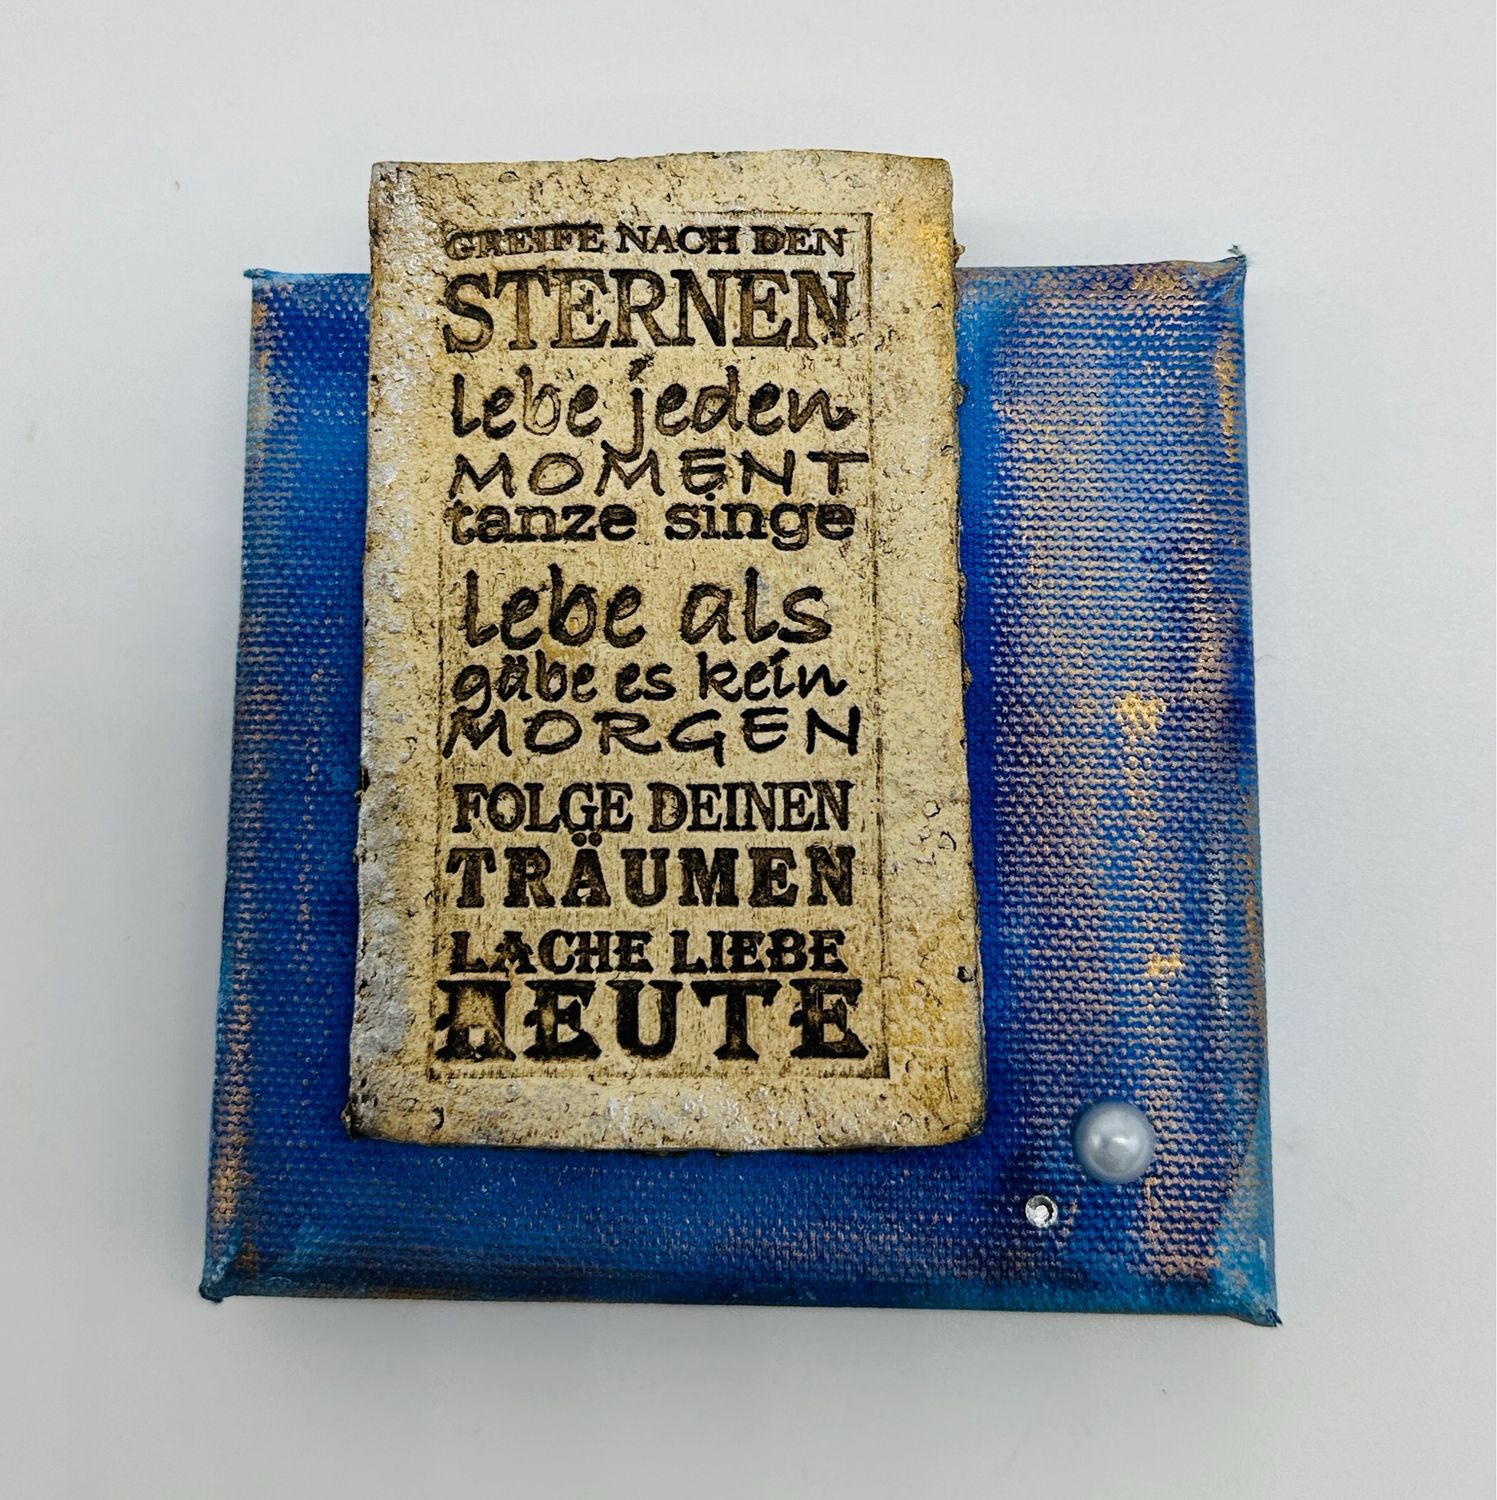 GREIFE NACH DEN
STERNEN
lebe jeden
MOMENT
tanze singe
lebe als
gäbe es kein
MORGEN
FOLGE DEINEN
TRÄUMEN
LACHE LIEBE
HEUTE